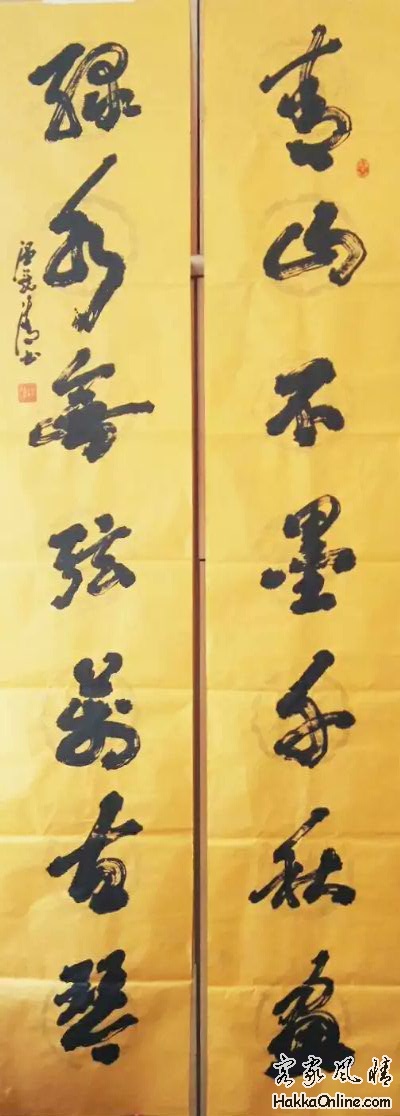 青山不墨千秋画
绿水无弦万古琴
客家风情
HakkaOnline.com